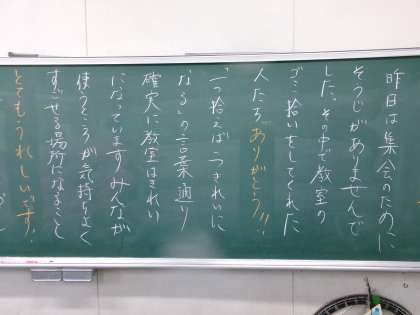 昨日は集会のために
そうじがありませんで
した。その中で教室の
ゴミ拾いをしてくれた
人たちありがとう!!
「一つ拾えば一つきれいに
なる」の言葉通り
確実に教室はきれい
になっていますみんなが
使うところが気持ちよく
すごせる場所になること
とてもうれしいです!